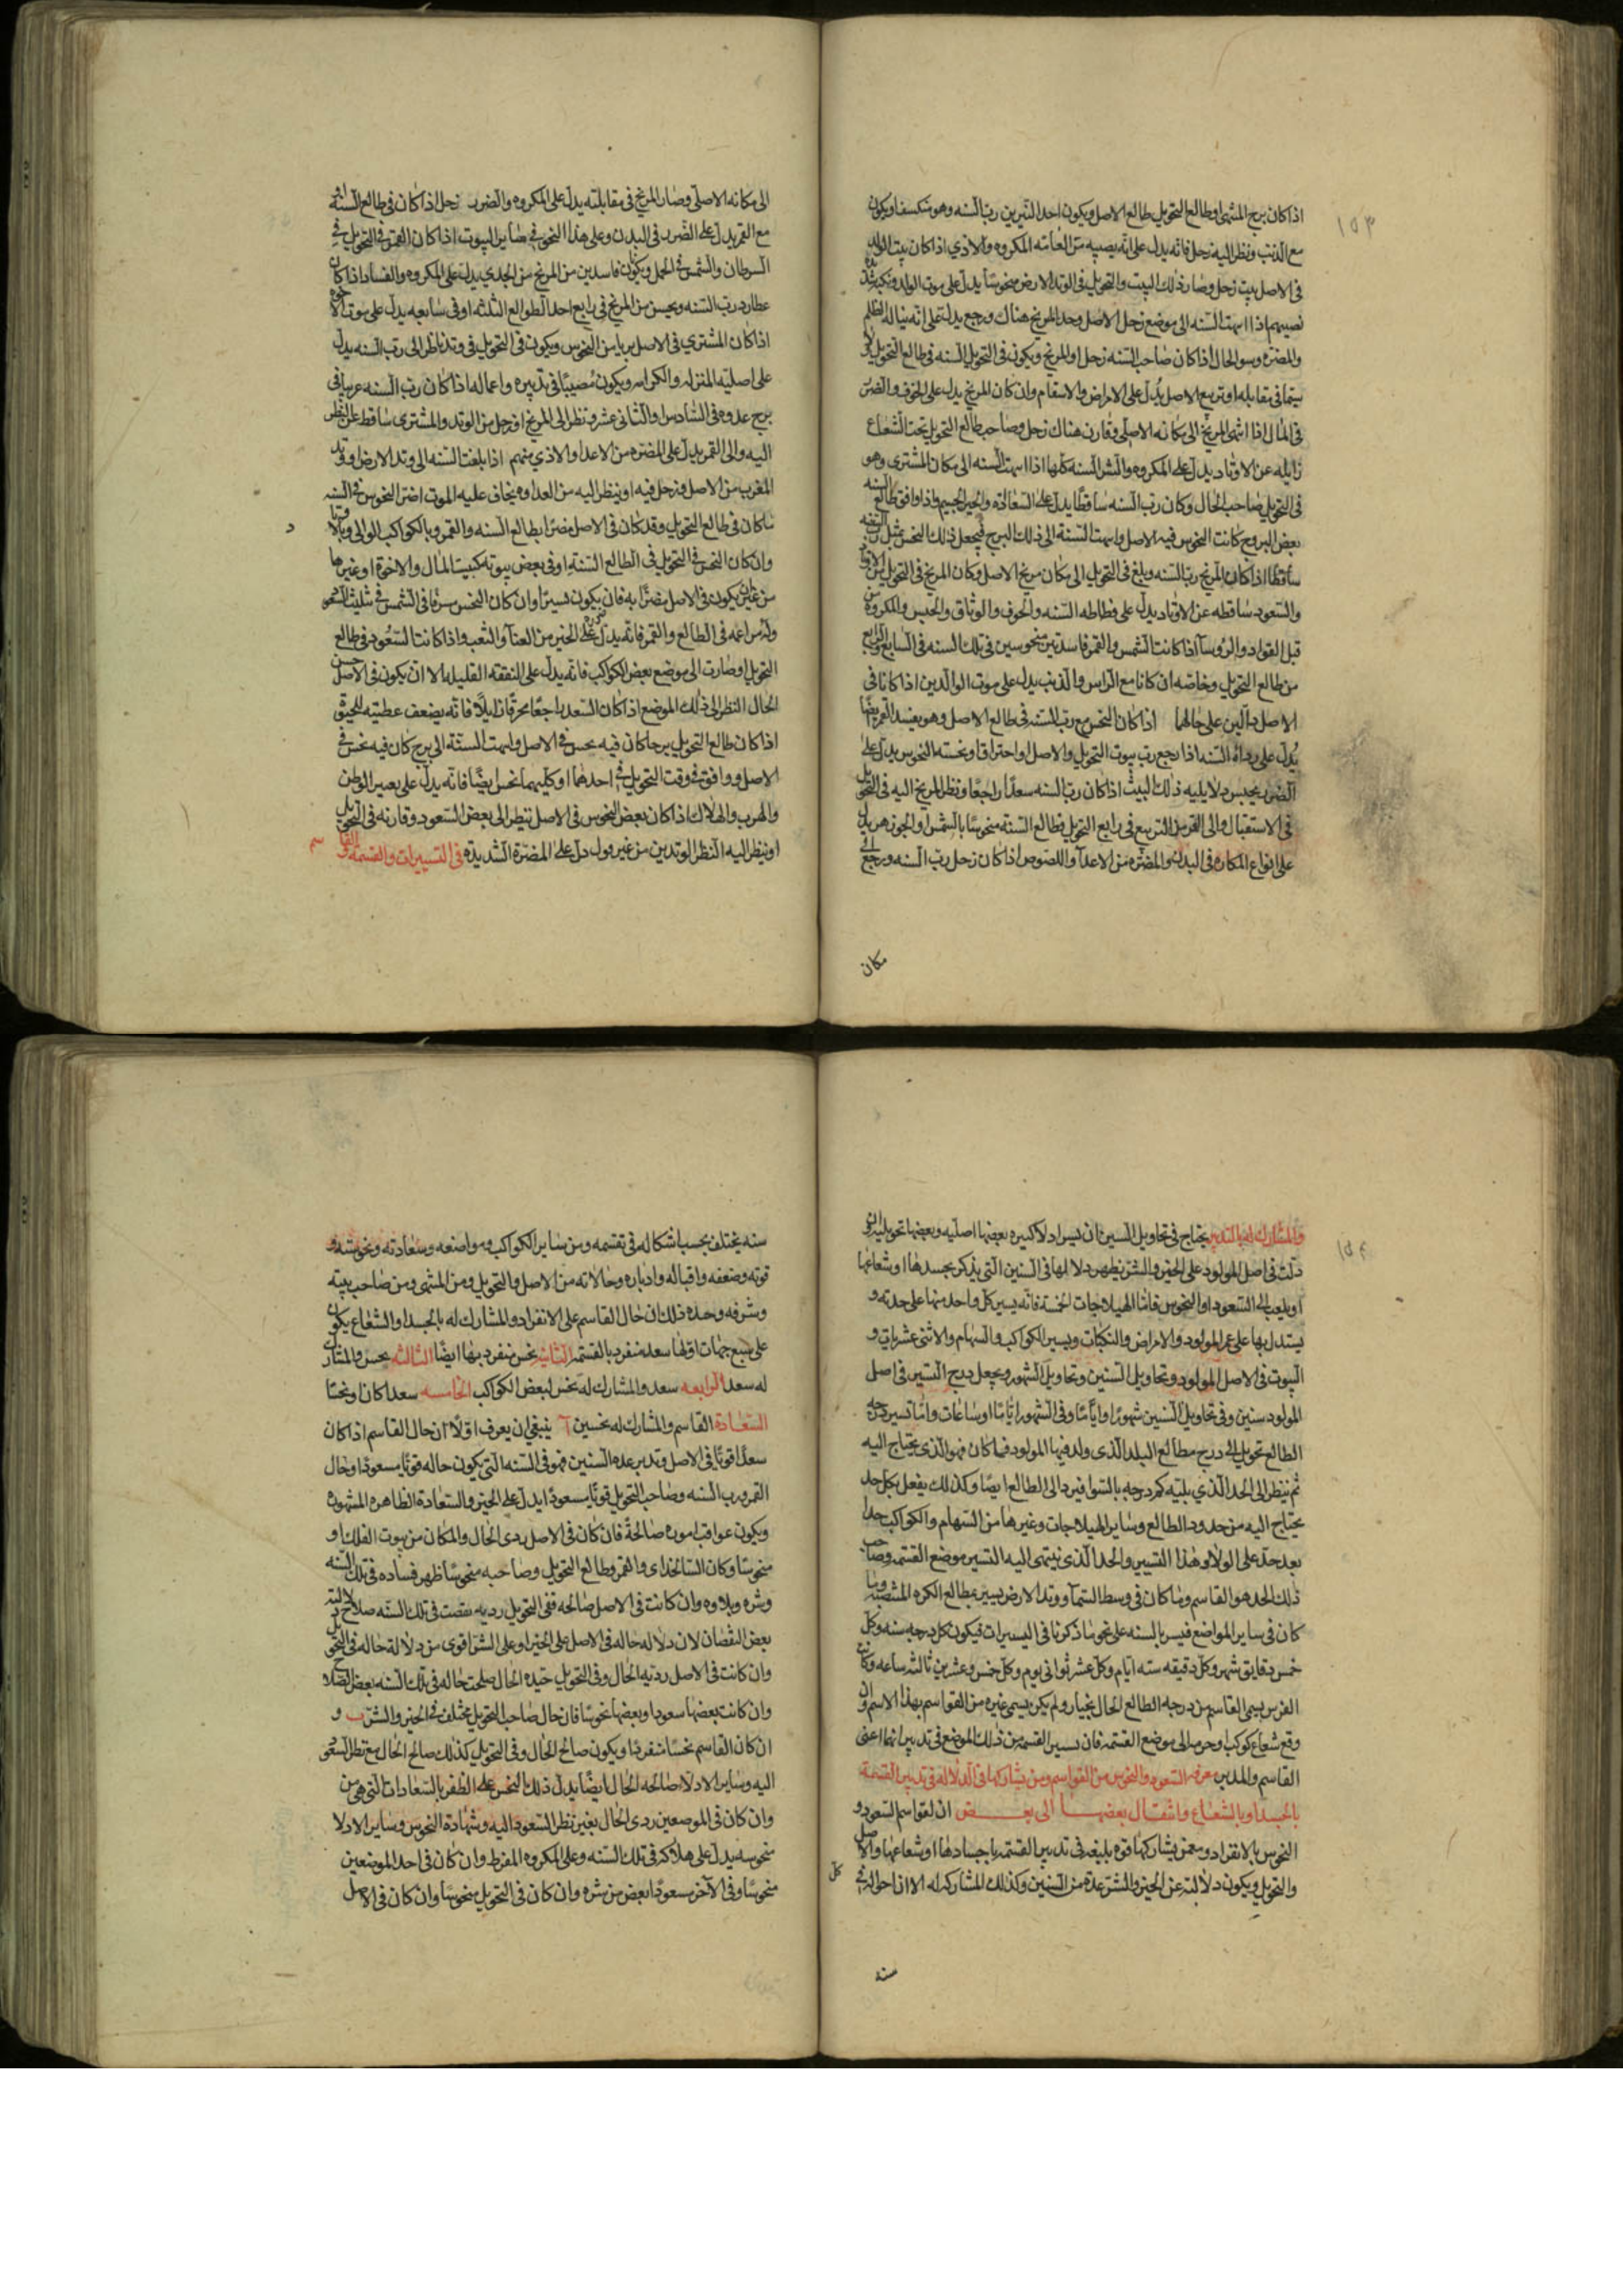 ١٥٣
اذا كان برج المنتهى او طالع التحويل طالع الاصل ويكون احد النيرين رب السنه وهو منكسفا ويكون
مع الذنب ونظر اليه زحل فانه يدل على انه يصيبه من العامه المكروه والاذي اذا كان بيت الولد
في الاصل بيت زحل وصار ذلك البيت والتحويل في الوتد الارض منحوسا يدل على موت الولد ونكبه شديده
تصيبهم اذا انتهت السنه الى موضع زحل الاصل وحد المريخ هناك ورجع يدل على انه يناله الظلم
والمضره وسو الحال اذا كان صاحب السنه زحل او المريخ ويكون في التحويل السنه في طالع التحويل
سيما في مقابله او تربيع الاصل يدل على الامراض والاسقام وان كان المريخ يدل على الخوف والضر
في المال اذا انتهى المريخ الى مكانه الاصلي وقارن هناك زحل وصاحب طالع التحويل تحت الشعاع
زايله عن الاوتاد يدل على المكروه والشر السنه كلها اذا انتهت السنه الى مكان المشترى وهو
في التحويل صاحب الحال وكان رب السنه ساقطا يدل على السعاده والخير الجسيم واذا وافق طالع السنه
بعض البروج كانت النحوس فيه الاصل وانتهت السنة الى ذلك البرج فيجعل ذلك النحس مثل رب السنه
ساقطا اذا كان المريخ رب السنه وبلغ في التحويل الى مكان مريخ الاصل وكان المريخ في التحويل من الاوتاد
والسعود ساقطه عن الاوتاد يدل على فظاظه السنه والخوف والوثاق والحبس والمكروه من
قبل القواد والروسا اذا كانت الشمس والقمر فاسدتين منحوسين في تلك السنه في السابع والرابع
من طالع التحويل وخاصه ان كانا مع الراس والذنب يدل على موت الوالدين اذا كانا في
الاصل دالين على حالهما اذا كان النحس مع رب السنه في طالع الاصل وهو يفسد القمر ايضا
يدل على رداه السنه اذا رجع رب بيوت التحويل والاصل او احتراقا ونحسته النحوس يدل على
الضرر بحسب دلايليه ذلك البيت اذا كان رب السنه سعدا راجعا ونظر المريخ اليه في التحويل
في الاستقبال والى القمر من التربيع في رابع التحويل فطالع السنة منحوسا بالشمس او الجوزهر يدل
على انواع المكاره في البدن والمضره من الاعدا واللصوص اذا كان زحل رب السنه ورجع الى
مكان
الى مكانه الاصلي وصار المريخ في مقابلته يدل على المكروه والضرر زحل اذا كان في طالع السنه او
مع القمر يدل على الضرر في البدن وعلى هذا النحو في ساير البيوت اذا كان القمر في التحويل في
السرطان والشمس في الحمل ويكون فاسدين من المريخ من الجدي يدل على المكروه والفساد اذا كان
عطارد رب السنه ويحبس من المريخ في رابع احد الطوالع الثلثه او في سابعه يدل على موت الاخوه
اذا كان المشتري في الاصل بريا من النحوس ويكون في التحويل في وتد ناظر الى رب السنه يدل
على اصليه المنزله والكرامه ويكون مصيبا في تدبيره واعماله اذا كان رب السنه غريبا في
برج عدوه في السادس او الثاني عشر ونظر الى المريخ او زحل من الوتد والمشترى ساقط عن النظر
اليه والى القمر يدل على المضره من الاعدا والاذي منهم اذا بلغت السنه الى وتد الارض او وتد
المغرب من الاصل وزحل فيه او ينظر اليه من العداوه يخاف عليه الموت اضر النحوس في السنه
ماكان في طالع التحويل وقد كان في الاصل مضرا بطالع السنه والقمر وبالكواكب الوالي وقتا
وان كان النحس في التحويل في الطالع السنة او في بعض بيوته كبيت المال والاخوة او غيرها
من غير ان يكون في الاصل مضرا به فان يكون يسيرا وان كان النحس مشرقا في الشمس في تثليث السعود
في الطالع والقمر فانه يدل على الخير من العنا والتعب واذا كانت السعود في طالع
التحويل او صارت الى موضع بعض الكواكب فانه يدل على النفقه القليله الا ان يكون في الاصل حسن
الحال النظر الى ذلك الموضع اذا كان السعد راجعا محرقا زايلا فانه يضعف عطيته للحيوة
اذا كان طالع التحويل برجا كان فيه نحس في الاصل وانتهت السنة الى برج كان فيه نحس في
الاصل ووافق في وقت التحويل في احدهما او كليهما نحس ايضا فانه يدل على تغيير الوطن
والهرب والهلاك اذا كان بعض النحوس في الاصل تنظر الى بعض السعود وقارنه في التحويل
او ينظر اليه النظر الوتدين من غير دل على المضرة الشديدة في التسييرات والقسمه والقاسم
١٥٤
والمشارك له بالتدبير يحتاج في تحاويل السنين ان يسير ادلا كثيره بعضها اصليه وبعضها تحويليه التي
دلت في اصل المولود على الخير والشر يظهر دلالها في السنين التي يذكر بجسدها او شعاعها
او يلعب الى السعود او النحوس فاما الهيلاجات الخمسة فانه يسير كل واحد منها على حدته و
يستدل بها على عمر المولود والامراض والنكبات ويسير الكواكب والسهام والاثنى عشريات و
البيوت في الاصل المولود وتحاويل السنين وتحاويل الشهور ويجعل درج التسيير في اصل
المولود سنين وفي تحاويل السنين شهورا واياما وفي الشهور اياما او ساعات واما تسيير درجه
الطالع تحويل الى درج مطالع البلد الذى ولد فيها المولود فما كان فهو الذى يحتاج اليه
ثم ينظر الى الحد الذي يليه كم درجه بالسوا فيرد الى الطالع ايضا وكذلك يفعل بكل حد
يحتاج اليه من حدود الطالع وساير الهيلاجات وغيرها من السهام والكواكب حدا
بعد حد على الولا وهذا التسيير والحد الذى ينتهى اليه التسيير موضع القسمه وصاحب
ذلك الحد هو القاسم وما كان في وسط السماء ووتد الارض يسير بمطالع الكره المنتصبه وما
كان في ساير المواضع فيسير بالسنه على نحو ما ذكرنا في التسييرات فيكون كل درجه سنه وكل
خمس دقايق شهر وكل دقيقه سته ايام وكل عشر ثواني يوم وكل خمس وعشرين ثالثه ساعه وكانت
الفرس يسمى القاسم من درجه الطالع الحال بختيار ولم يكن يسمى غيره من القواسم بهذا الاسم وان
وقع شعاع كوكب وجرمه الى موضع القسمه فان يسير القسمه من ذلك الموضع في تدبيرانهما اعنى
القاسم والمدبر معرفه السعود والنحوس من القواسم ومن يشاركها في الدلاله في تدبير القسمه
بالجسد او بالشعاع وانتقال بعضها الى بعض ان لقواسم السعود و
النحوس بالانفراد وممن يشاركها قوه بليغه في تدبير القسمه باجسادها او شعاعها والاصل
والتحويل ويكون دلالته عن الخير والشر عدة من السنين وكذلك المشارك له الا ان احواله في كل
سنه
سنه يختلف بحسب اشكاله في تقسمه ومن ساير الكواكب ومواضعه وسعادته ونحوسته و
قوته وضعفه واقباله وادباره وحالاته من الاصل والتحويل ومن المنتهى ومن صاحب بيته
وشرفه وحده ذلك ان حال القاسم على الانفراد والمشارك له بالجسد او الشعاع يكون
على سبع جهات اولها سعد منفرد بالقسمه الثانيه نحس منفرد بها ايضا الثالثه نحس والمشارك
له سعد الرابعه سعد والمشارك له نحس لبعض الكواكب الخامسه سعدا كان او نحسا
السعادة القاسم والمشارك له نحسين آ ينبغي ان يعرف اولا ان حال القاسم اذا كان
سعدا قويا في الاصل وتدبر عده السنين فهو في السنه التي يكون حاله قويا مسعودا وحال
القمر ورب السنه وصاحب التحويل قويا مسعودا يدل على الخير والسعادة الظاهره المشهوره
ويكون عواقب اموره صالحة فان كان في الاصل ردى الحال والمكان من بيوت الفلك او
منحوسا وكان السالخداى والقمر وطالع التحويل وصاحبه منحوسا ظهر فساده في تلك السنه
وشره وبلاوه وان كانت في الاصل صالحه ففى التحويل رديه نقصت في تلك السنه صلاح دلالته
بعض النقصان لان دلاله حاله في الاصل على الخير او على الشر اقوى من دلالة حاله في التحويل
وان كانت في الاصل رديه الحال وفى التحويل جيده الحال صلحت حاله في تلك السنه بعض الصلاح
وان كانت بعضها سعودا وبعضها نحوسا فان حال صاحب التحويل مختلف في الخير والشر ب و
ان كان القاسم نحسا منفردا ويكون صالح الحال وفى التحويل كذلك صالح الحال مع نظر السعود
اليه وساير الادلا صالحه الحال ايضا يدل ذلك النحس على الظفر بالسعادات التي هى من
وان كان في الموضعين ردى الحال بغير نظر السعود اليه وشهادة النحوس وساير الادلا
منحوسه يدل على هلاكه في تلك السنه وعلى المكروه المفرط وان كان في احد الموضعين
منحوسا وفى الآخر مسعودا بعض من شره وان كان في التحويل منحوسا وان كان في الاصل